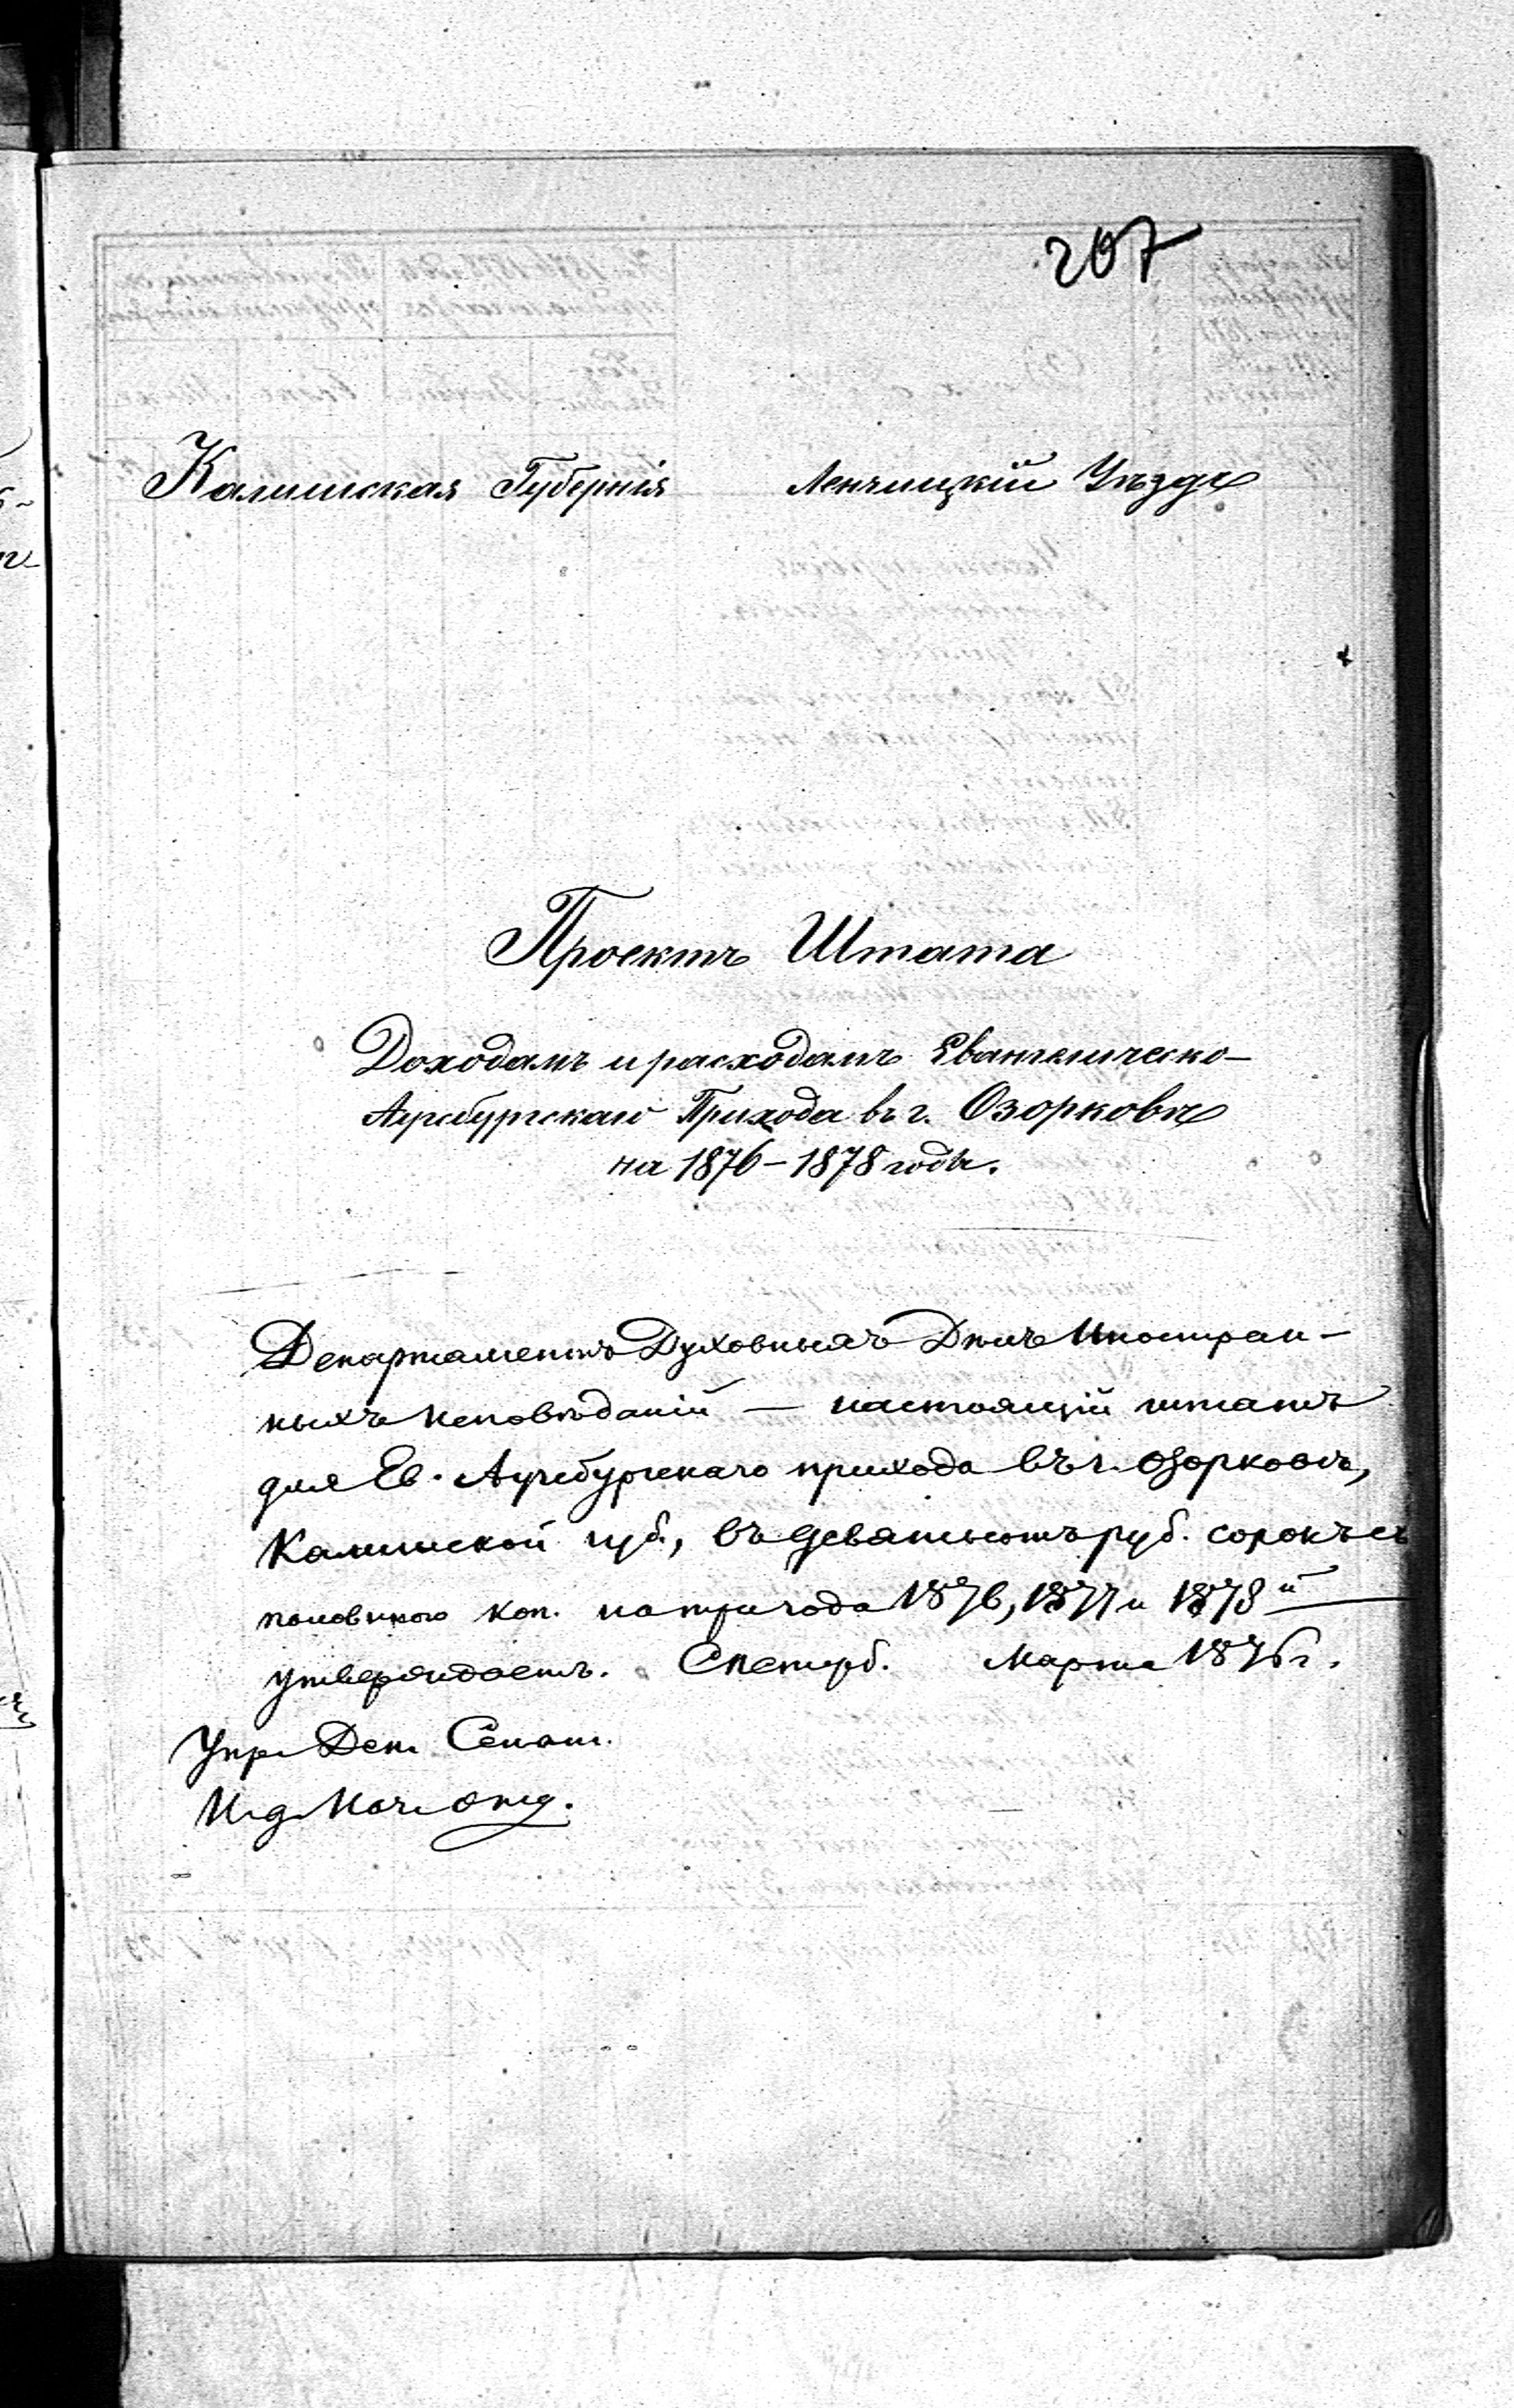 207
Калишская Губернія Ленчицкій Уѣздъ
Проектъ Штата
Доходамъ и расходамъ Евангеличиско-
Аугсбургскаго Прихода въ г. Озорковѣ
на 1876-1878 годы.
Департаментъ Духовныхъ Дѣлъ Иностран-
ныхъ Исповѣданій — настоящій штатъ
для Ев. Аугсбургскаго прихода въ г. Озорковѣ,
Калишской губ., въ девятьсотъ руб. сорокъ съ
половиною коп. на три года 1876, 1877 и 1878й
утверждаетъ. СПетерб. Марта 1876 г.
Упр. Деп. Сенат.
И. д. Нач. Отд.